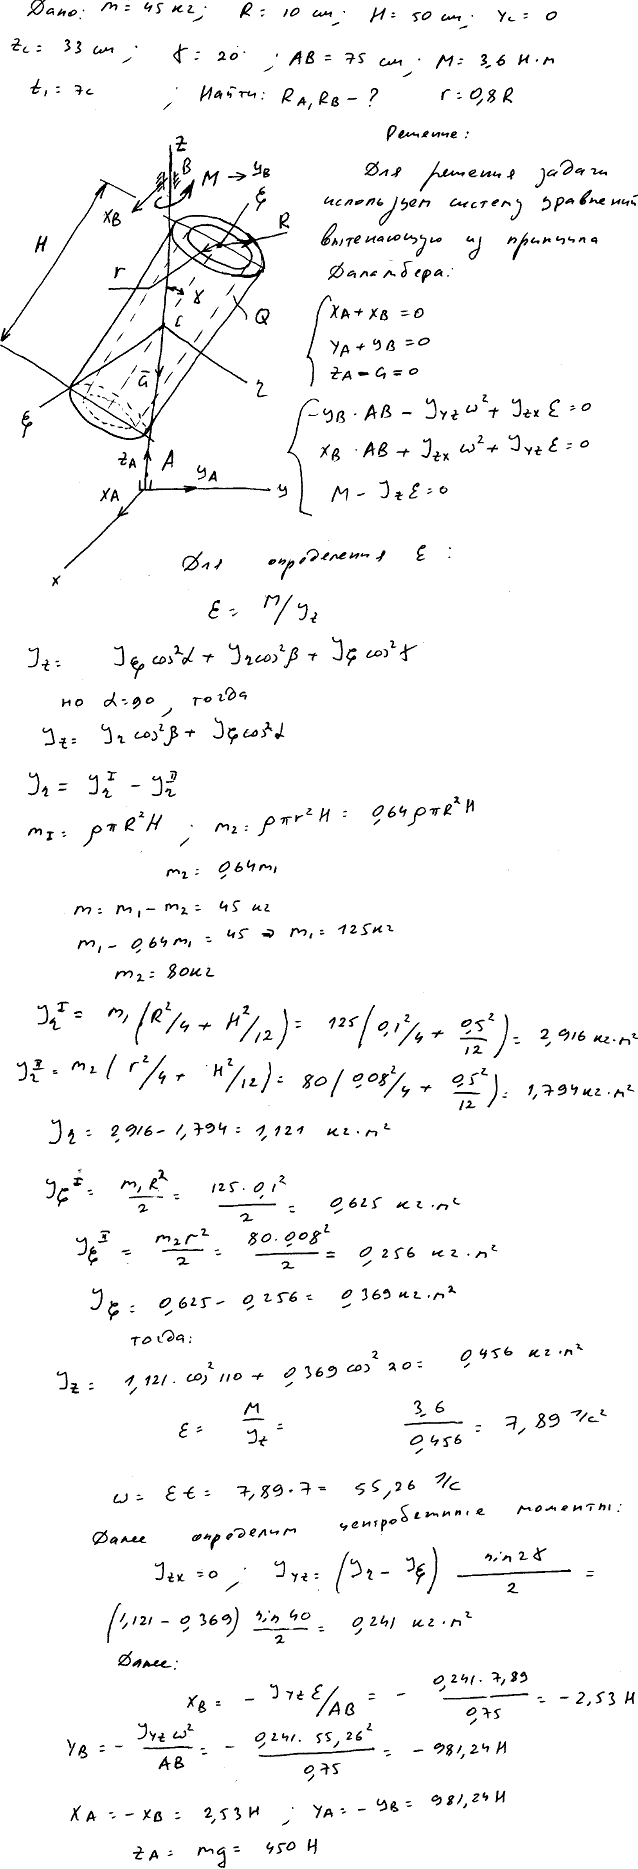 Дано: m = 45 кг; R = 10 см; H = 50 см; Yc = 0
Zc = 33 см; γ = 20°; AB = 75 см; M = 3,6 Н·м
t₁ = 7c ; Найти: RA, RB - ? r = 0,8R
Решение:
Для решения задачи
используем систему уравнений
вытекающую из принципа
Даламбера:
XA + XB = 0
YA + YB = 0
ZA - G = 0
-YB · AB - Jyz ω² + Jzx ε = 0
XB · AB + Jzx ω² + Jyz ε = 0
M - Jz ε = 0
z
B
M
yB
xB
ξ
R
H
r
γ
Q
c
G
η
ξ
zA
A
yA
xA
y
x
Для определения ε:
ε = M/Jz
Jz = Jξ cos²α + Jη cos²β + Jζ cos²γ
но α = 90, тогда
Jz = Jη cos²β + Jζ cos²α
Jη = Jη^I - Jη^II
mI = ρπR²H ; m₂ = ρπr²H = 0,64ρπR²H
m₂ = 0,64m₁
m = m₁ - m₂ = 45 кг
m₁ - 0,64m₁ = 45 ⇒ m₁ = 125 кг
m₂ = 80 кг
Jη^I = m₁(R²/4 + H²/12) = 125(0,1²/4 + 0,5²/12) = 2,916 кг·м²
Jη^II = m₂(r²/4 + H²/12) = 80(0,08²/4 + 0,5²/12) = 1,794 кг·м²
Jη = 2,916 - 1,794 = 1,121 кг·м²
Jζ^I = m₁R²/2 = 125·0,1²/2 = 0,625 кг·м²
Jξ^II = m₂r²/2 = 80·0,08²/2 = 0,256 кг·м²
Jξ = 0,625 - 0,256 = 0,369 кг·м²
тогда:
Jz = 1,121·cos²110 + 0,369 cos²20 = 0,456 кг·м²
ε = M/Jz = 3,6/0,456 = 7,89 1/c²
ω = εt = 7,89·7 = 55,26 1/c
Далее определим центробежные моменты:
Jzx = 0 ; Jyz = (Jη - Jξ) sin2γ/2 =
(1,121 - 0,369) sin40/2 = 0,241 кг·м²
Далее:
XB = - Jyz ε/AB = - 0,241·7,89/0,75 = -2,53 Н
YB = - Jyz ω²/AB = - 0,241·55,26²/0,75 = -981,24 Н
XA = -XB = 2,53 Н ; YA = -YB = 981,24 Н
ZA = mg = 450 Н